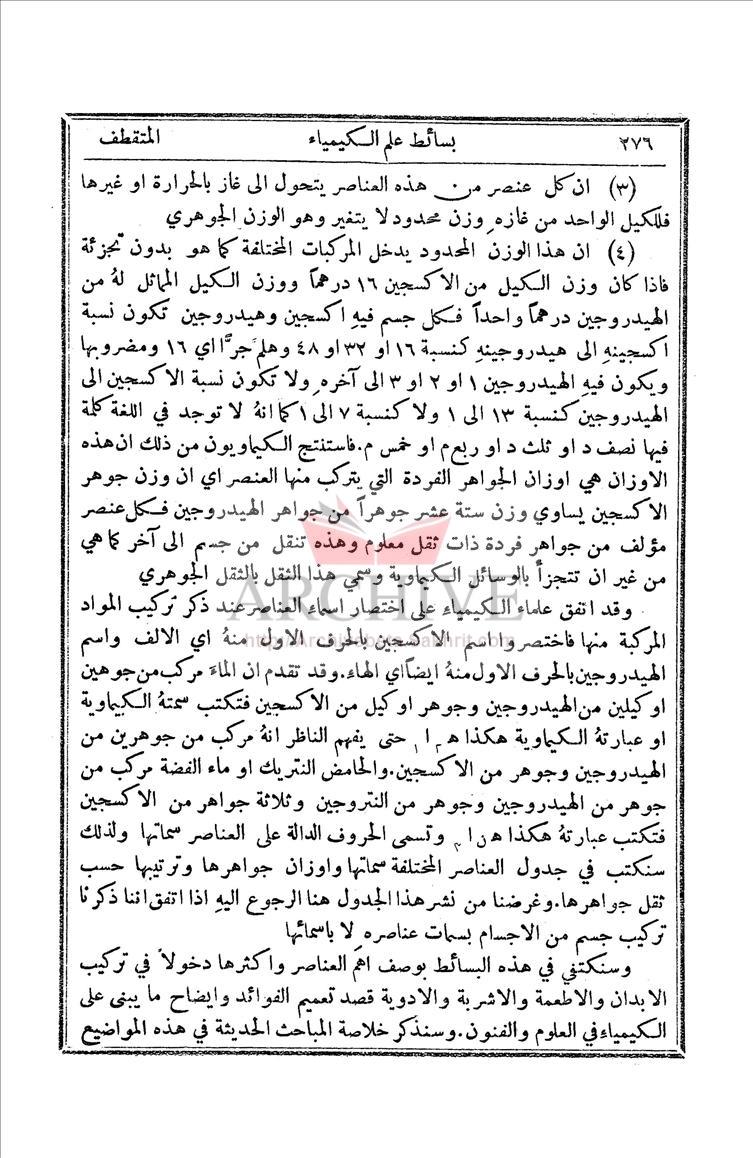 ٢٧٦ بسائط علم الكيمياء المتقطف
(٣) ان كل عنصر من هذه العناصر يتحول الى غاز بالحرارة او غيرها
فللكيل الواحد من غازهِ وزن محدود لا يتغير وهو الوزن الجوهري
(٤) ان هذا الوزن المحدود يدخل المركبات المختلفة كما هو بدون تجزئة
فاذا كان وزن الكيل من الاكسجين ١٦ درهماً ووزن الكيل المماثل لهُ من
الهيدروجين درهماً واحداً فكل جسم فيهِ اكسجين وهيدروجين تكون نسبة
اكسجينهِ الى هيدروجينهِ كنسبة ١٦ او ٣٢ او ٤٨ وهلمَّ جرًّا اي ١٦ ومضروبها
ويكون فيهِ الهيدروجين ١ او ٢ او ٣ الى آخرهِ ولا تكون نسبة الاكسجين الى
الهيدروجين كنسبة ١٣ الى ١ ولا كنسبة ٧ الى ١ كما انهُ لا توجد في اللغة كلمة
فيها نصف د او ثلث د او ربع م او خمس م. فاستنتج الكيماويون من ذلك ان هذه
الاوزان هي اوزان الجواهر الفردة التي يتركب منها العنصر اي ان وزن جوهر
الاكسجين يساوي وزن ستة عشر جوهراً من جواهر الهيدروجين فكل عنصر
مؤلف من جواهر فردة ذات ثقل معلوم وهذه تنقل من جسم الى آخر كما هي
من غير ان تتجزأ بالوسائل الكيماوية وسمي هذا الثقل بالثقل الجوهري
ARCHIVE
وقد اتفق علماء الكيمياء على اختصار اسماء العناصر عند ذكر تركيب المواد
المركبة منها فاختصروا اسم الاكسجين بالحرف الاول منهُ اي الالف واسم
http://Archivebeta.Sakhrit.com
الهيدروجين بالحرف الاول منهُ ايضاً اي الهاء. وقد تقدم ان الماءَ مركب من جوهين
او كيلين من الهيدروجين وجوهر او كيل من الاكسجين فتكتب سمتهُ الكيماوية
او عبارتهُ الكيماوية هكذا هـ٢ ا١ حتى يفهم الناظر انهُ مركب من جوهرين من
الهيدروجين وجوهر من الاكسجين. والحامض النتريك او ماء الفضة مركب من
جوهر من الهيدروجين وجوهر من النتروجين وثلاثة جواهر من الاكسجين
فتكتب عبارتهُ هكذا هـ ن ا٣ وتسمى الحروف الدالة على العناصر سماتها ولذلك
سنكتب في جدول العناصر المختلفة سماتها واوزان جواهرها وترتيبها حسب
ثقل جواهرها. وغرضنا من نشر هذا الجدول هنا الرجوع اليهِ اذا اتفق اننا ذكرنا
تركيب جسم من الاجسام بسمات عناصرهِ لا باسمائها
وسنكتفي في هذه البسائط بوصف اهمّ العناصر واكثرها دخولاً في تركيب
الابدان والاطعمة والاشربة والادوية قصد تعميم الفوائد وايضاح ما يبنى على
الكيمياء في العلوم والفنون. وسنذكر خلاصة المباحث الحديثة في هذه المواضيع